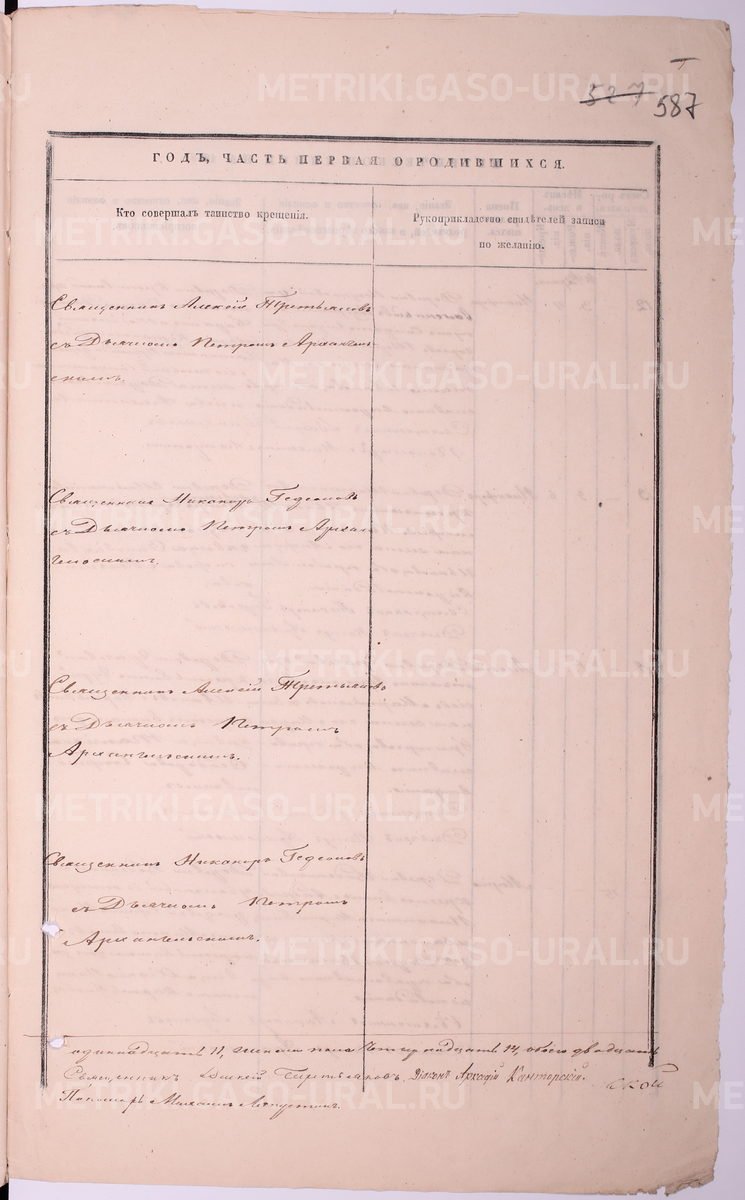 527 587
ГОДЪ, ЧАСТЬ ПЕРВАЯ О РОДИВШИХСЯ.
Кто совершалъ таинство крещенія.
Рукоприкладство свидѣтелей записи
по желанію.
Священникъ Алексій Третьяковъ
съ Дьячкомъ Петромъ Архангель-
скимъ.
Священникъ Никаноръ Гедеоновъ
съ Дьячкомъ Петромъ Архан-
гельскимъ.
Священникъ Алексій Третьяковъ
съ Дьячкомъ Петромъ
Архангельскимъ.
Священникъ Никаноръ Гедеоновъ
съ Дьячкомъ Петромъ
Архангельскимъ.
одиннадцать 11, женска пола четырнадцать 14, обоего двадцать
Священникъ Алексій Третьяковъ. Діаконъ Аркадій Канторскій.
Пономарь Михаилъ
METRIKI.GASO-URAL.RU